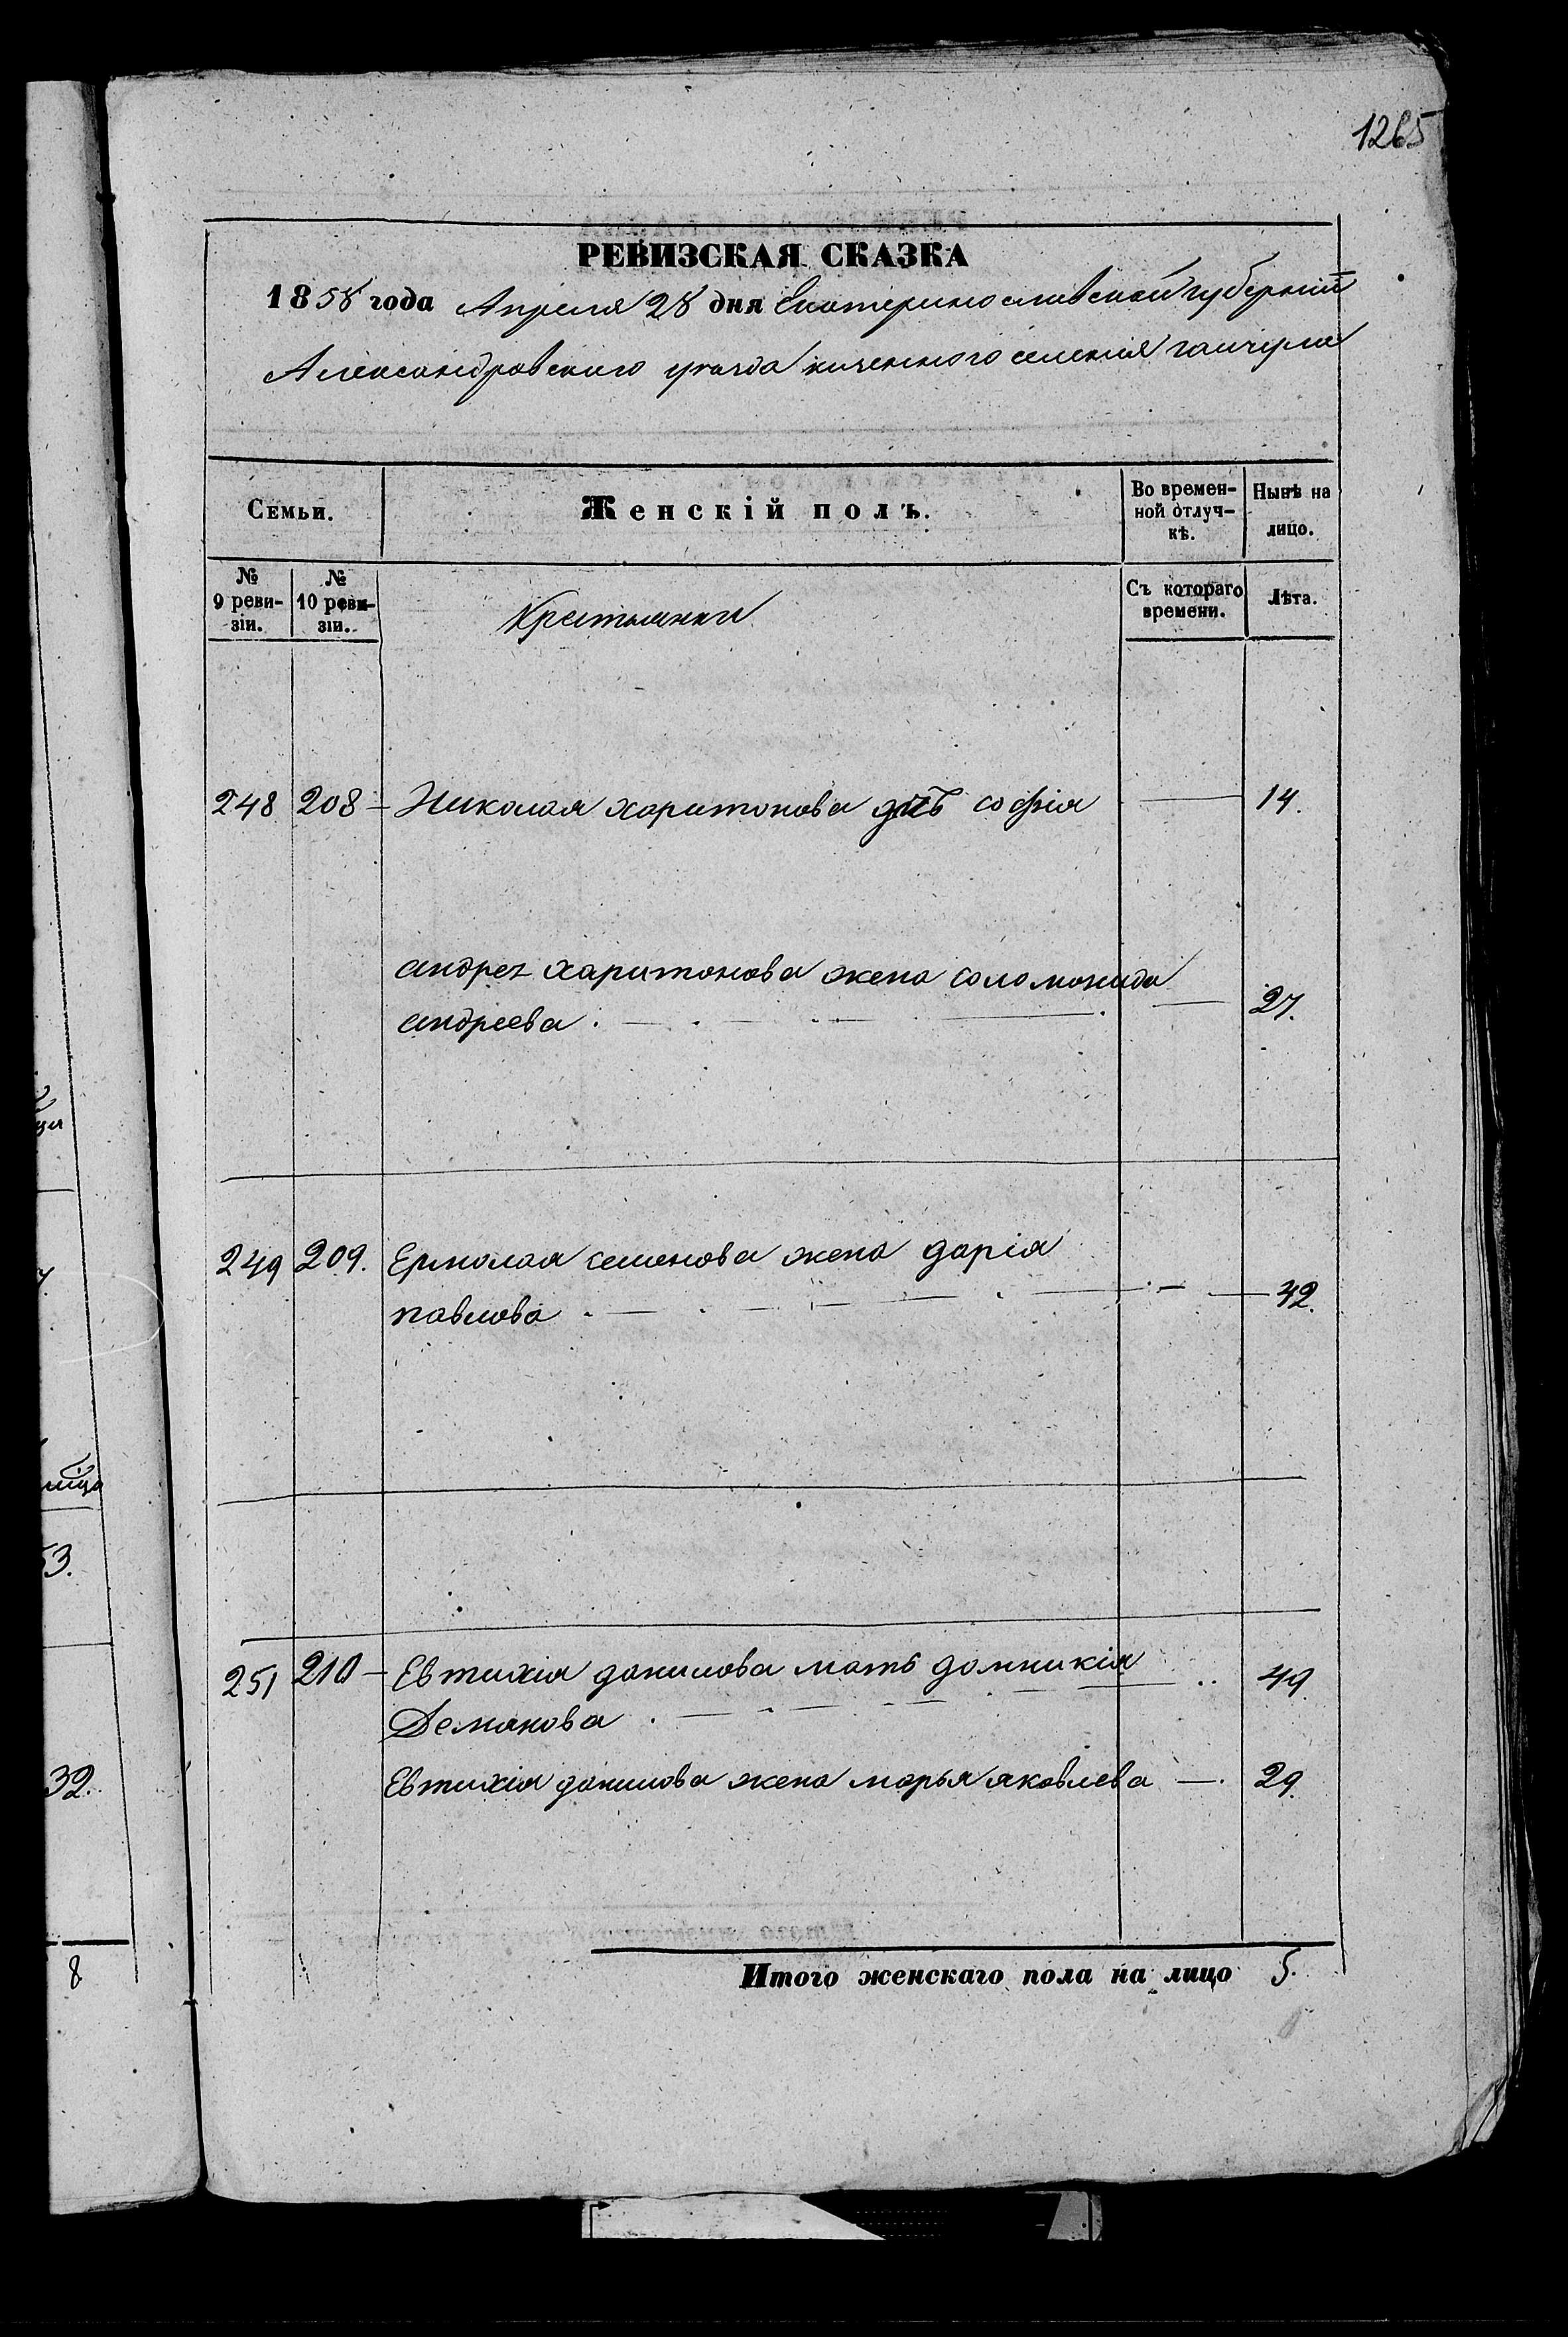 1265
РЕВИЗСКАЯ СКАЗКА
1858 года Апреля 28 дня Екатеринославской губернии
Александровского уезда казенного селения гайчула
Семьи.
Женскій полъ.
Во времен-
ной отлуч-
кѣ.
Нынѣ на
лицо.
№
9 реви-
зіи.
№
10 реви-
зіи.
Крестьянки
Съ котораго
времени.
Лѣта.
248 208 Николая харитонова дчь софія 14.
андрея харитонова жена соломонида
андреева 27.
249 209. Ермолая семенова жена дарія
павлова 42.
251 210 Евтихія данилова мать домникія 49.
Демянова
Евтихія данилова жена марья яковлева 29.
Итого женскаго пола на лицо 5.
53.
32.
8